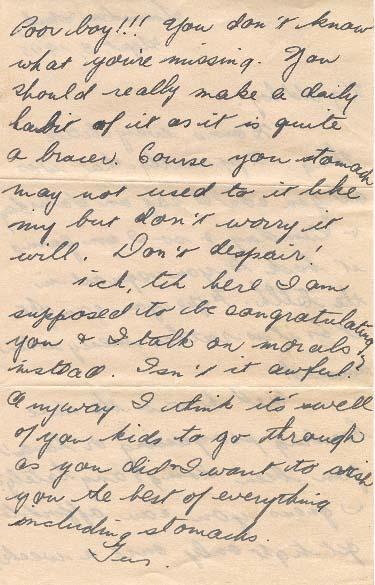 Poor boy!!! You don't know
what you're missing. You
should really make a daily
habit of it as it is quite
a bracer. Course you stomach
may not used to it like
my but don't worry it
will. Don't despair!
tch, tch here I am
supposed to be congratulating
you & I talk on morals
instead. Isn't it awful?
Anyway I think it's swell
of you kids to go through
as you did & I want to wish
you the best of everything
including stomachs.